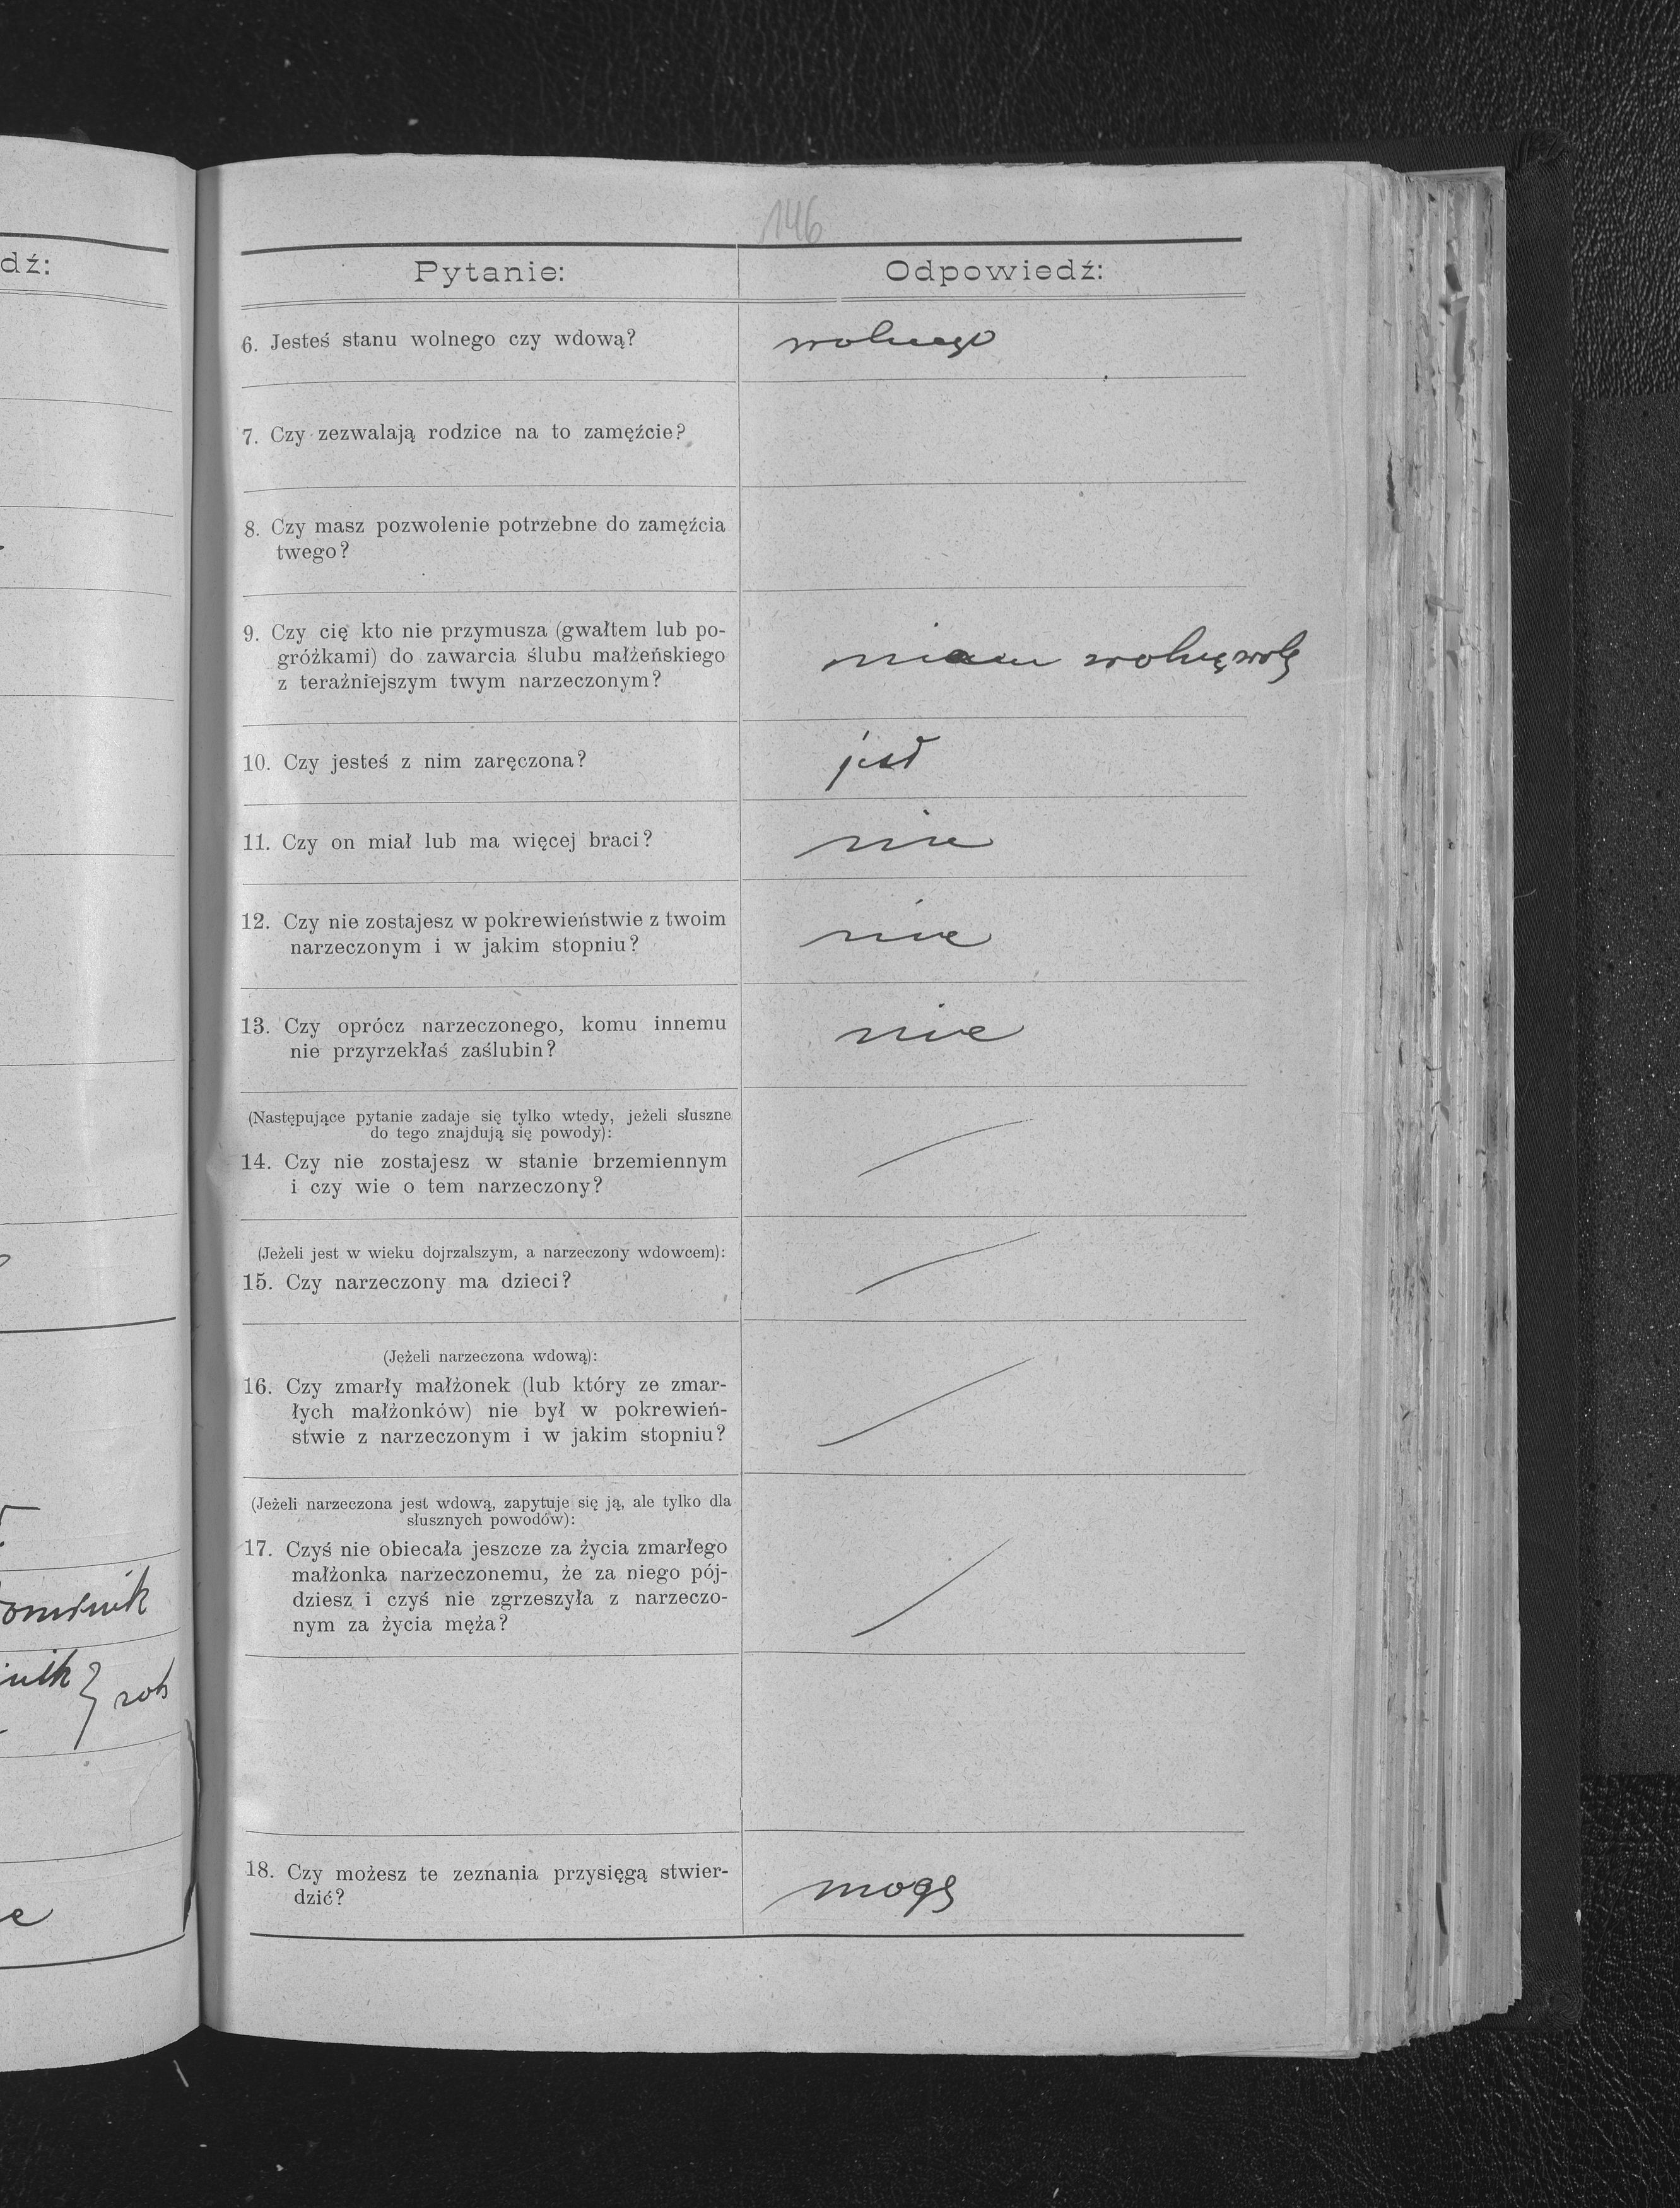 146
dź:
Pytanie: Odpowiedź:
6. Jesteś stanu wolnego czy wdową? wolnego
7. Czy zezwalają rodzice na to zamęźcie?
8. Czy masz pozwolenie potrzebne do zamęźcia
twego?
9. Czy cię kto nie przymusza (gwałtem lub po-
gróżkami) do zawarcia ślubu małżeńskiego
z teraźniejszym twym narzeczonym?
mam wolną wolę
10. Czy jesteś z nim zaręczona? jest
11. Czy on miał lub ma więcej braci? nie
12. Czy nie zostajesz w pokrewieństwie z twoim
narzeczonym i w jakim stopniu?
nie
13. Czy oprócz narzeczonego, komu innemu
nie przyrzekłaś zaślubin?
nie
(Następujące pytanie zadaje się tylko wtedy, jeżeli słuszne
do tego znajdują się powody):
14. Czy nie zostajesz w stanie brzemiennym
i czy wie o tem narzeczony?
(Jeżeli jest w wieku dojrzalszym, a narzeczony wdowcem):
15. Czy narzeczony ma dzieci?
(Jeżeli narzeczona wdową):
16. Czy zmarły małżonek (lub który ze zmar-
łych małżonków) nie był w pokrewień-
stwie z narzeczonym i w jakim stopniu?
(Jeżeli narzeczona jest wdową, zapytuje się ją, ale tylko dla
słusznych powodów):
17. Czyś nie obiecała jeszcze za życia zmarłego
małżonka narzeczonemu, że za niego pój-
dziesz i czyś nie zgrzeszyła z narzeczo-
nym za życia męża?
18. Czy możesz te zeznania przysięgą stwier-
dzić?
mogę